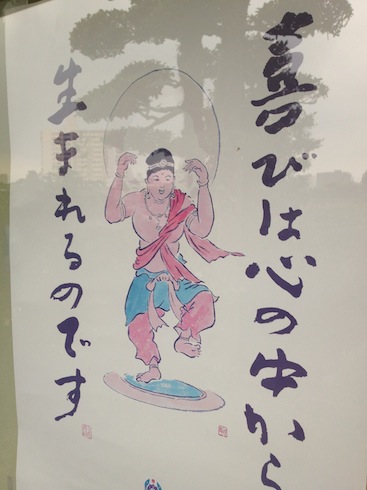 喜びは心の中から
生まれるのです